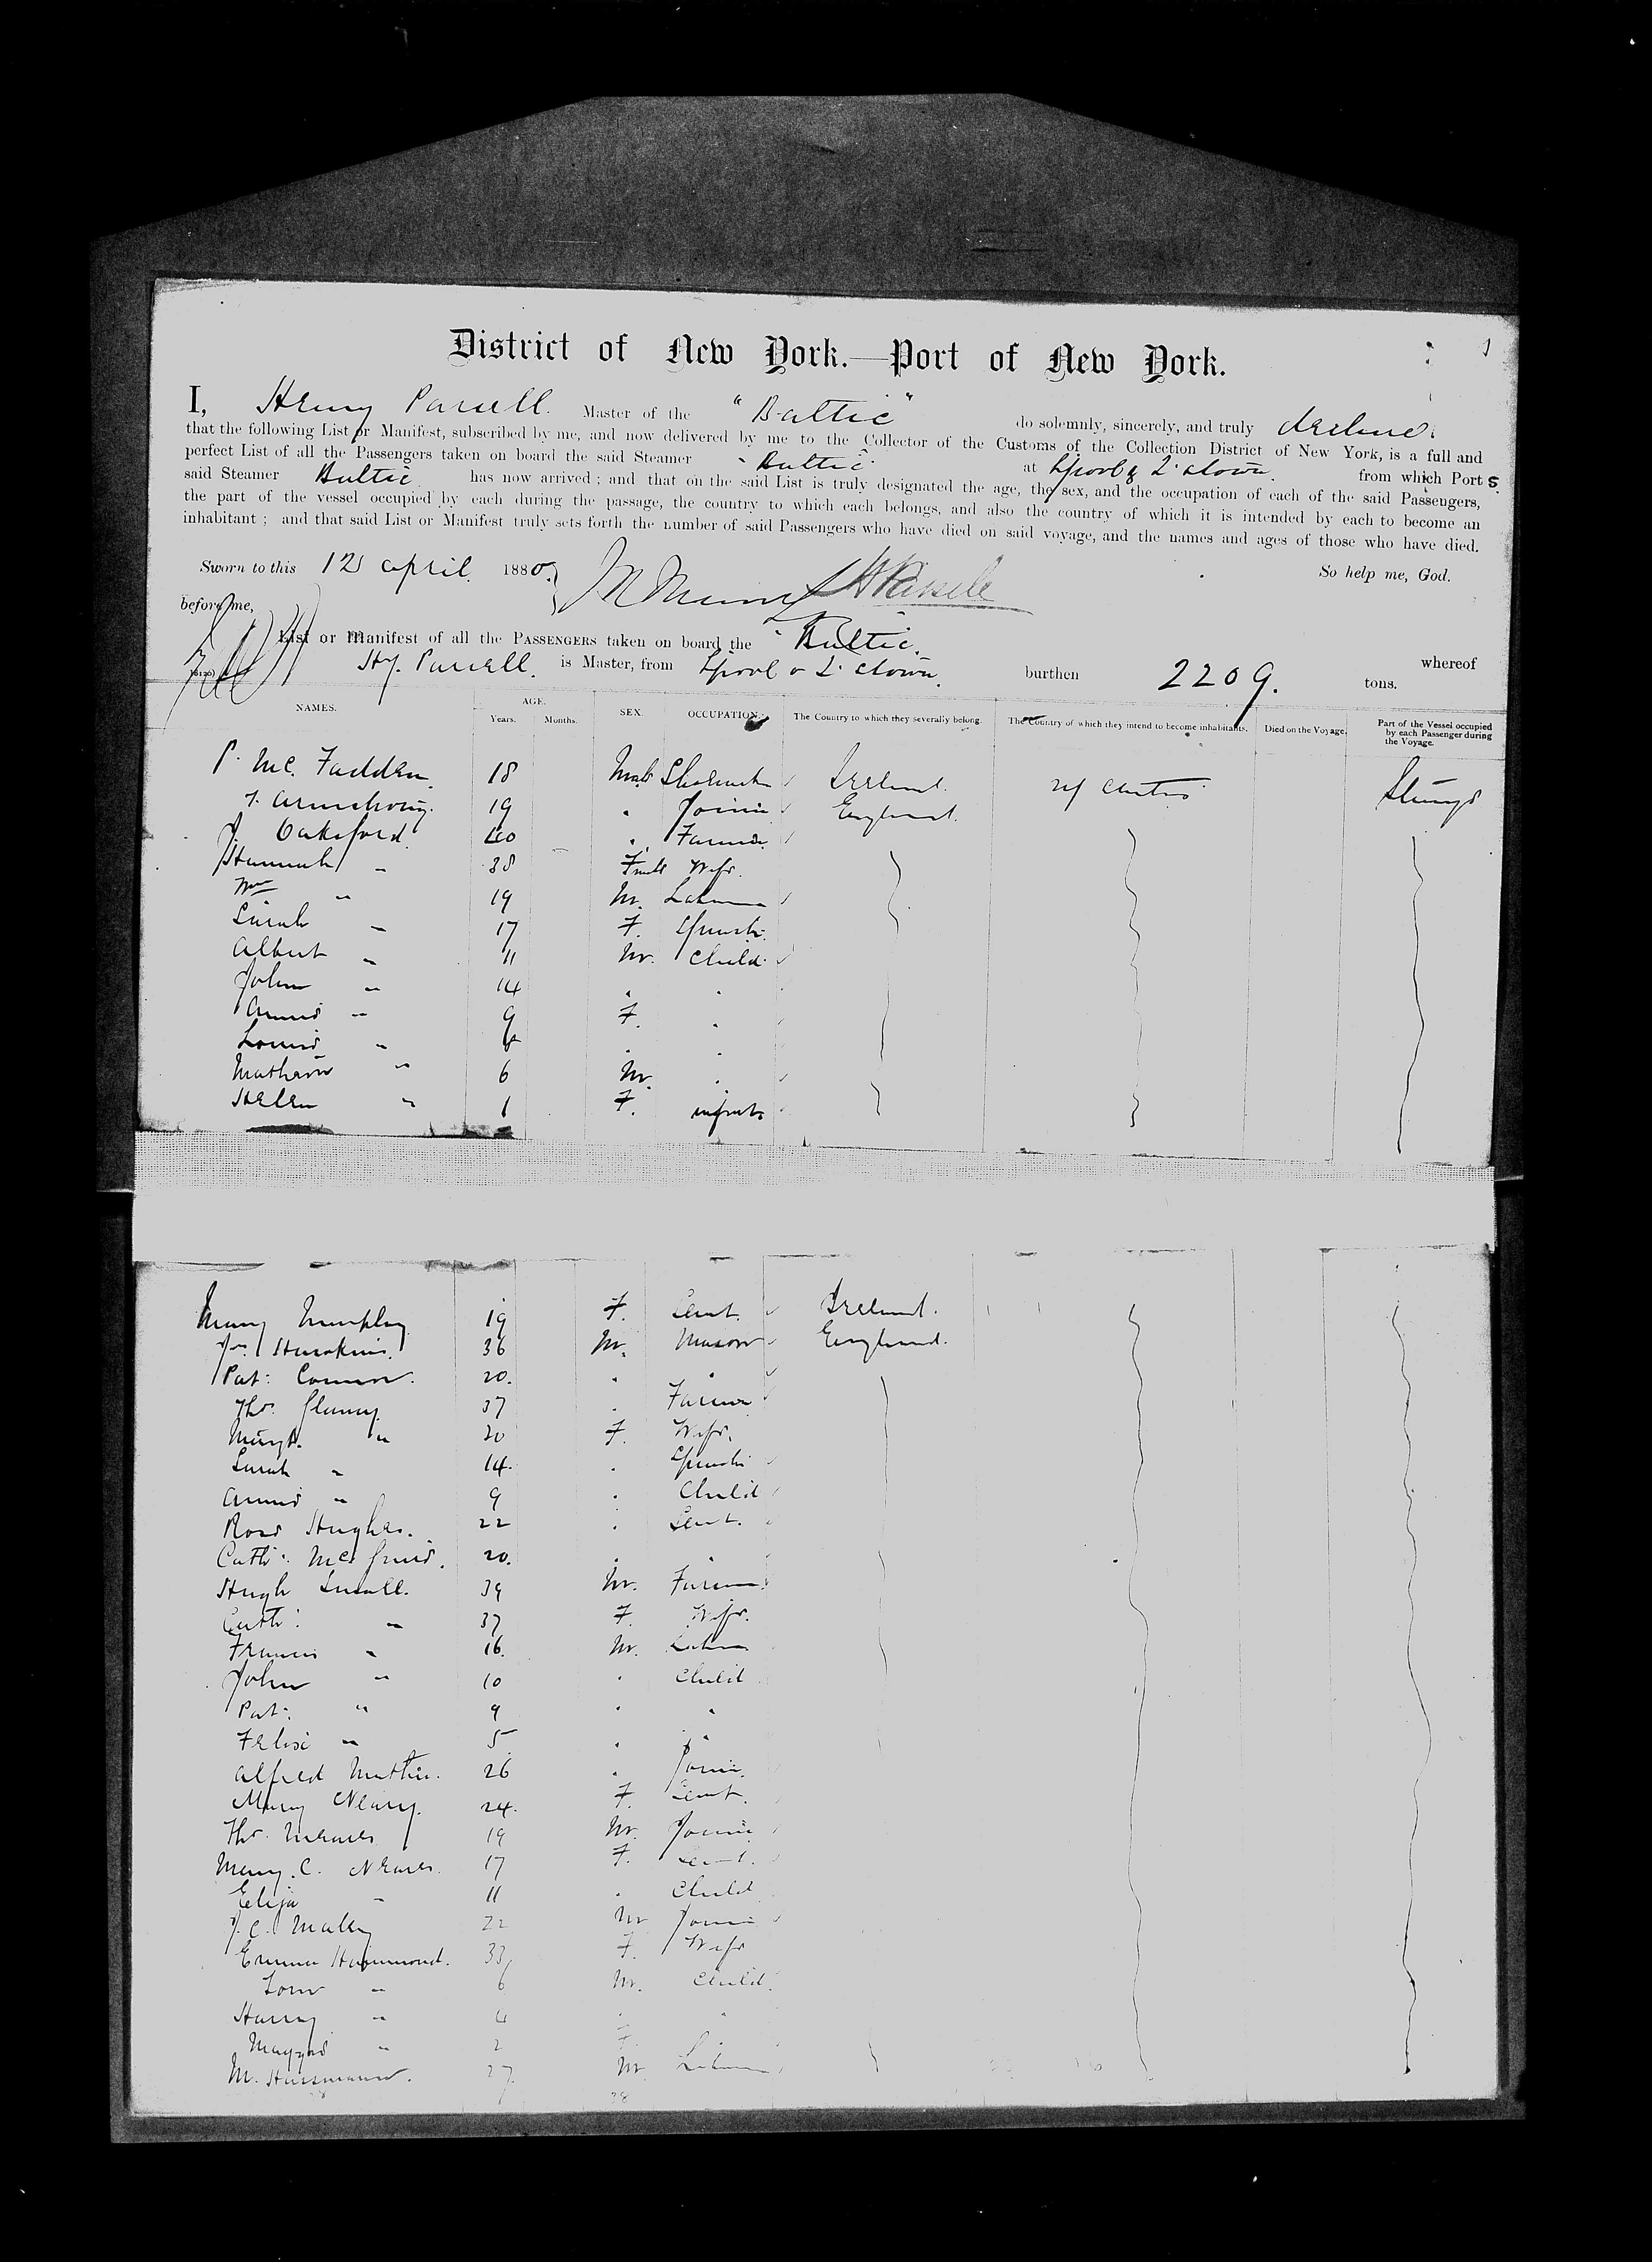 District of New York.—Port of New York.
I, Henry Parsell. Master of the "Baltic" do solemnly, sincerely, and truly declare
that the following List or Manifest, subscribed by me, and now delivered by me to the Collector of the Customs of the Collection District of New York, is a full and
perfect List of all the Passengers taken on board the said Steamer "Baltic" at Lpool & Q'stown. from which Ports
said Steamer Baltic has now arrived; and that on the said List is truly designated the age, the sex, and the occupation of each of the said Passengers,
the part of the vessel occupied by each during the passage, the country to which each belongs, and also the country of which it is intended by each to become an
inhabitant; and that said List or Manifest truly sets forth the number of said Passengers who have died on said voyage, and the names and ages of those who have died.
Sworn to this 12 April 1880. So help me, God.
before me,
List or Manifest of all the PASSENGERS taken on board the "Baltic. whereof
Hy. Parsell. is Master, from Lpool & Q'stown. burthen 2209. tons.
NAMES. AGE. Years. Months. SEX. OCCUPATION. The Country to which they severally belong. The Country of which they intend to become inhabitants. Died on the Voyage. Part of the Vessel occupied by each Passenger during the Voyage.
P. Mc. Fadden 18 Male Ireland
T. Armstrong. 19 " Joiner England.
J. Oakeford 40 " Farmer
Hannah " 38 Female Wife.
Wm " 19 M. Laborer
Sarah " 17 F. Spinstr.
Albert " 11 M. Child
John " 14 " "
Annie " 9 F. "
Louis " "  "
Mathew " 6 M. "
Helen " 1 F. infant
Mary Murphy 19 F. Servt. Ireland.
Jno Hawkins. 36 M. Mason England.
Pat: Connor. 20. " "
Thos. 37 " Farmer
Margt. " 30 F. Wife.
Sarah " 14. " Spinstr
Annie " 9 " Child
Rose Hughes. 22 " Servt.
Cath: 20. " "
Hugh Small. 39 M. Farmer
Cath: " 37 F. Wife.
Francis " 16. M. Laborer
John " 10 " Child
Pat: " 9 " "
Felix " 5 " "
Alfred 26 " Joiner
Mary Neary. 24. F. Servt.
Thos. 19 M. Joiner
Mary C. 17 F. Servt.
Eliza " 11 " Child
J. C. 22 M Joiner
Emma Hammond. 33 F. Wife
Tom " 6 M. Child.
Harry " 4 " "
Maggie " 2 F.
M. 27 M Laborer